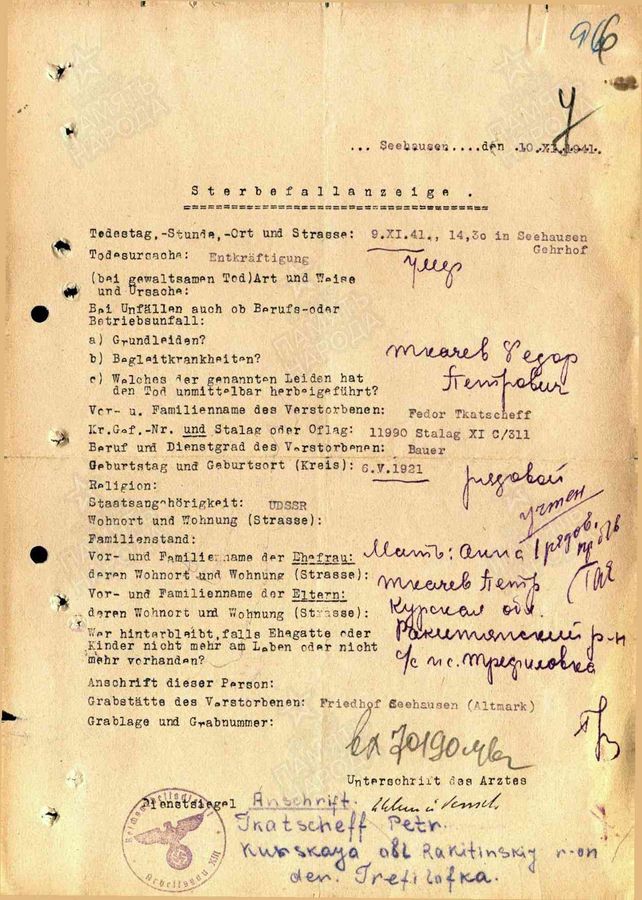 966
... Seehausen....den .10.XI.1941.
Sterbefallanzeige.
Todestag,-Stunde,-Ort und Strasse: 9.XI.41., 14,30 in Seehausen
Gehrhof
Todesursache: Entkräftigung
умер
(bei gewaltsamen Tod)Art und Weise
und Ursache:
Bei Unfällen auch ob Berufs-oder
Betriebsunfall:
a) Grundleiden?
b) Begleitkrankheiten?
Ткачев Федор
Петрович
c) Welches der genannten Leiden hat
den Tod unmittelbar herbeigeführt?
Vor- u. Familienname des Verstorbenen: Fedor Tkatscheff
Kr.Gef.-Nr. und Stalag oder Oflag: 11990 Stalag XI C/311
Beruf und Dienstgrad des Verstorbenen: Bauer
Geburtstag und Geburtsort (Kreis): 6.V.1921
рядовой
Religion:
Staatsangehörigkeit: UDSSR
учтен
Wohnort und Wohnung (Strasse):
Familienstand:
Vor- und Familienname der Ehefrau: Мать: Анна
deren Wohnort und Wohnung (Strasse): Ткачев Петр
Vor- und Familienname der Eltern: Курская обл.
deren Wohnort und Wohnung (Strasse):
Ракитянский р-н
Wer hinterbleibt,falls Ehegatte oder
Kinder nicht mehr am Leben oder nicht
mehr vorhanden?
с/с п.с. Трефиловка
Anschrift dieser Person:
Grabstätte des Verstorbenen: Friedhof Seehausen (Altmark)
Grablage und Grabnummer:
Unterschrift des Arztes
Dienstsiegel
Anschrift.
Tkatscheff Petr.
Kurskaya obl Rakitinskiy r-on
der. Trefilofka.
Reichsarbeitsdienst
Arbeitsgau XIII
ПАМЯТЬ НАРОДА